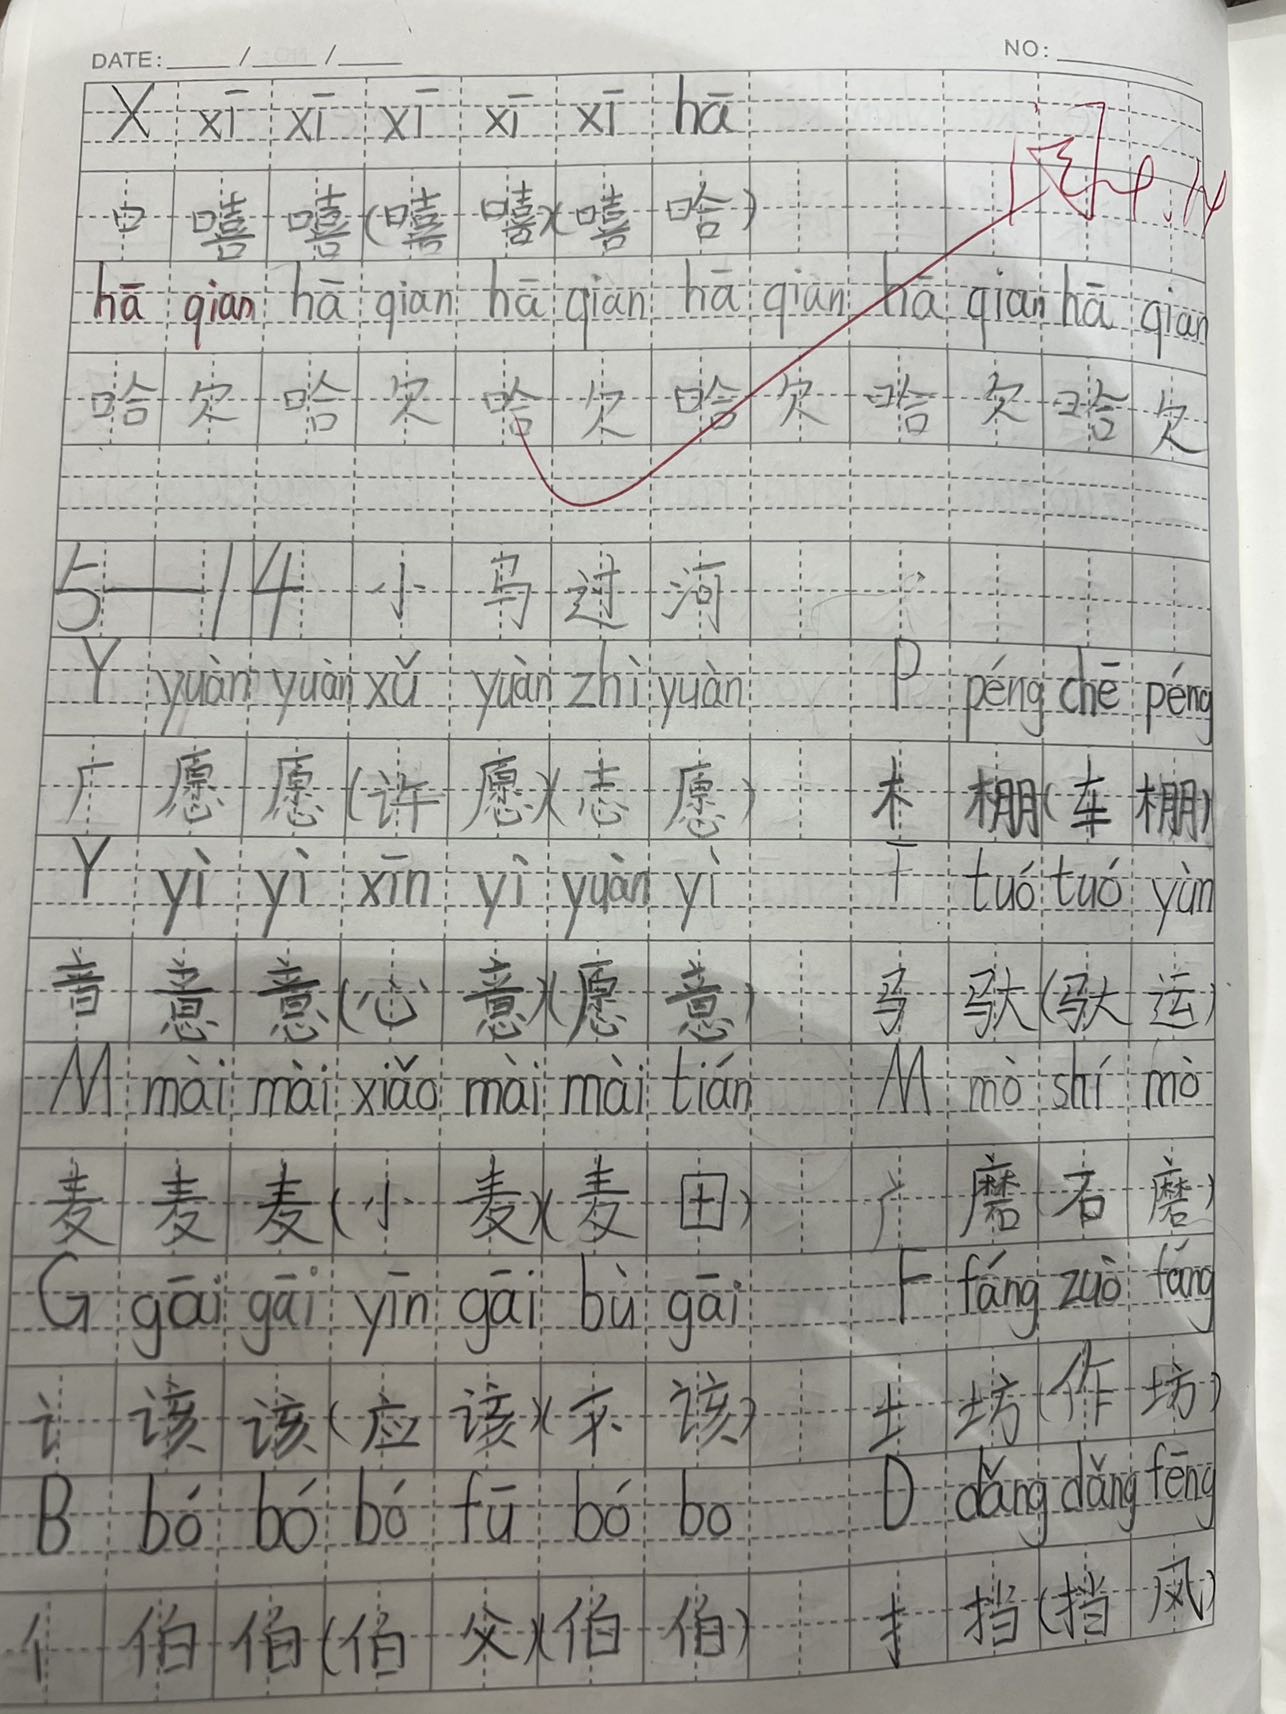 DATE: / / NO:
X xī xī xī xī xī hā
口 嘻 嘻 (嘻 嘻)(嘻 哈)
hā qian hā qian hā qian hā qian hā qian hā qian
哈 欠 哈 欠 哈 欠 哈 欠 哈 欠 哈 欠
5—14 小马过河
Y yuàn yuàn xǔ yuàn zhì yuàn P péng chē péng
厂 愿 愿 (许 愿)(志 愿) 木 棚 (车 棚)
Y yì yì xīn yì yuàn yì T tuó tuó yùn
音 意 意 (心 意)(愿 意) 马 驮 (驮 运)
M mài mài xiǎo mài mài tián M mò shí mò
麦 麦 麦 (小 麦)(麦 田) 广 磨 (石 磨)
G gāi gāi yīn gāi bù gāi F fáng zuò fáng
讠 该 该 (应 该)(不 该) 土 坊 (作 坊)
B bó bó bó fū bó bo D dǎng dǎng fēng
亻 伯 伯 (伯 父)(伯 伯) 扌 挡 (挡 风)